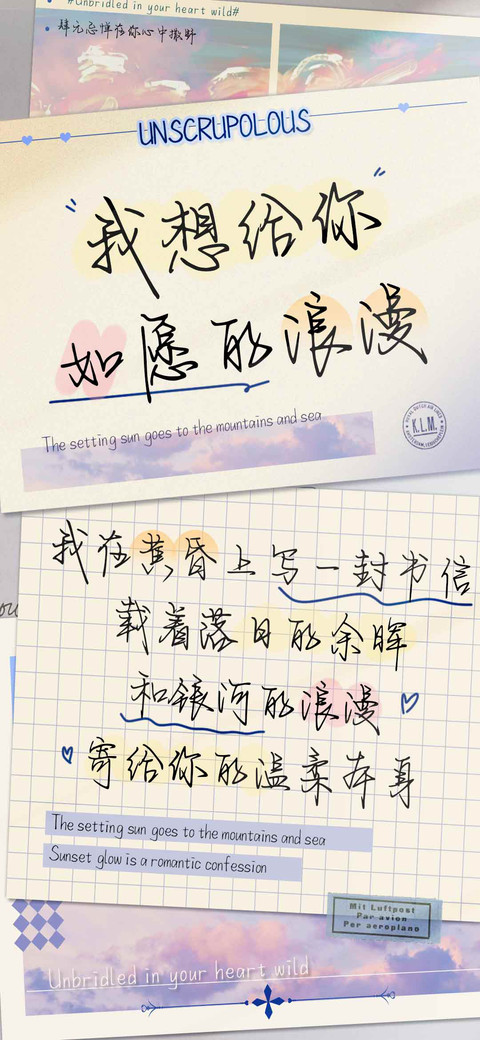 #Unbridled in your heart wild#
肆无忌惮在你心中撒野
UNSCRUPOLOUS
"我想给你"
如愿的浪漫
The setting sun goes to the mountains and sea
K.L.M.
我在黄昏上写一封书信
载着落日的余晖
和银河的浪漫
寄给你的温柔本身
The setting sun goes to the mountains and sea
Sunset glow is a romantic confession
Mit Luftpost
Par avion
Per aeroplano
Unbridled in your heart wild